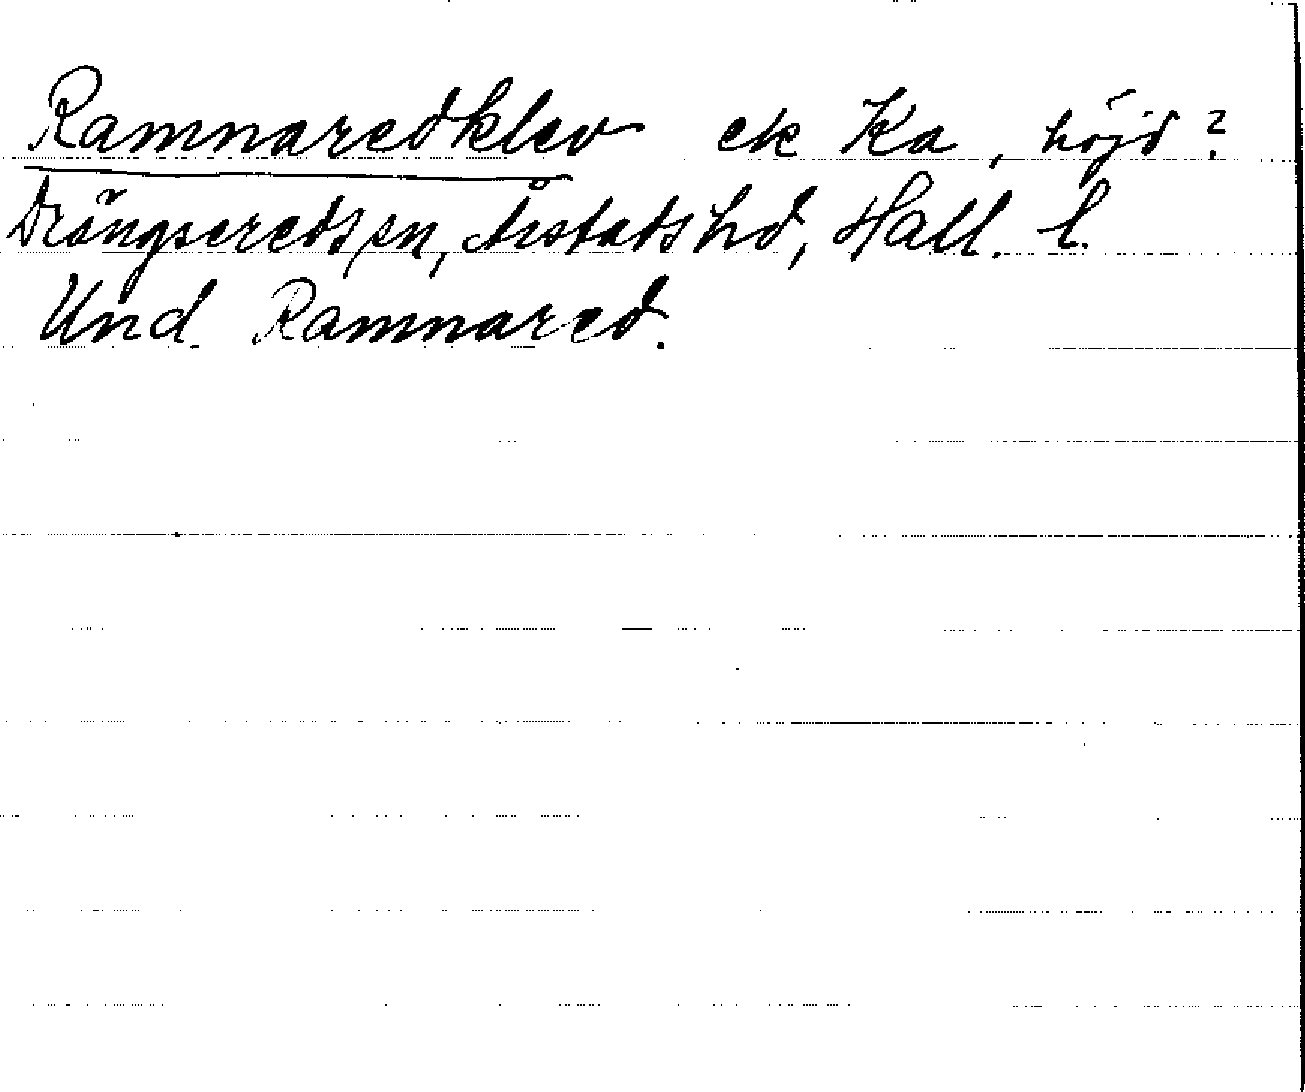 Ramnaredklev ek Ka, höjd?
Drängseredssn, Årstads hd, Hall. l.
Und. Ramnared.